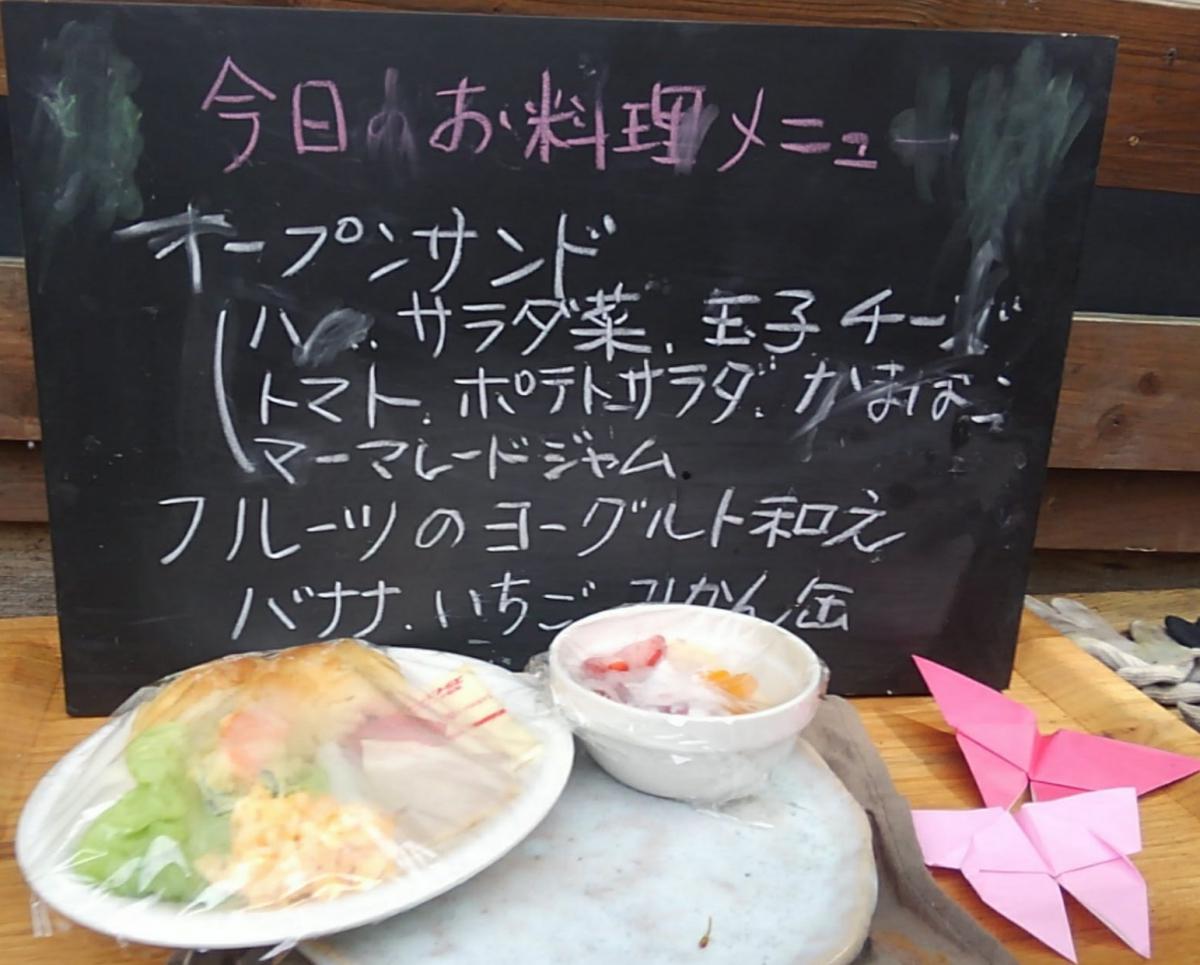 今日のお料理メニュー
オープンサンド
ハ、サラダ菜、玉子チーズ
トマト、ポテトサラダ、かまぼこ
マーマレードジャム
フルーツのヨーグルト和え
バナナ、いちご みかん缶